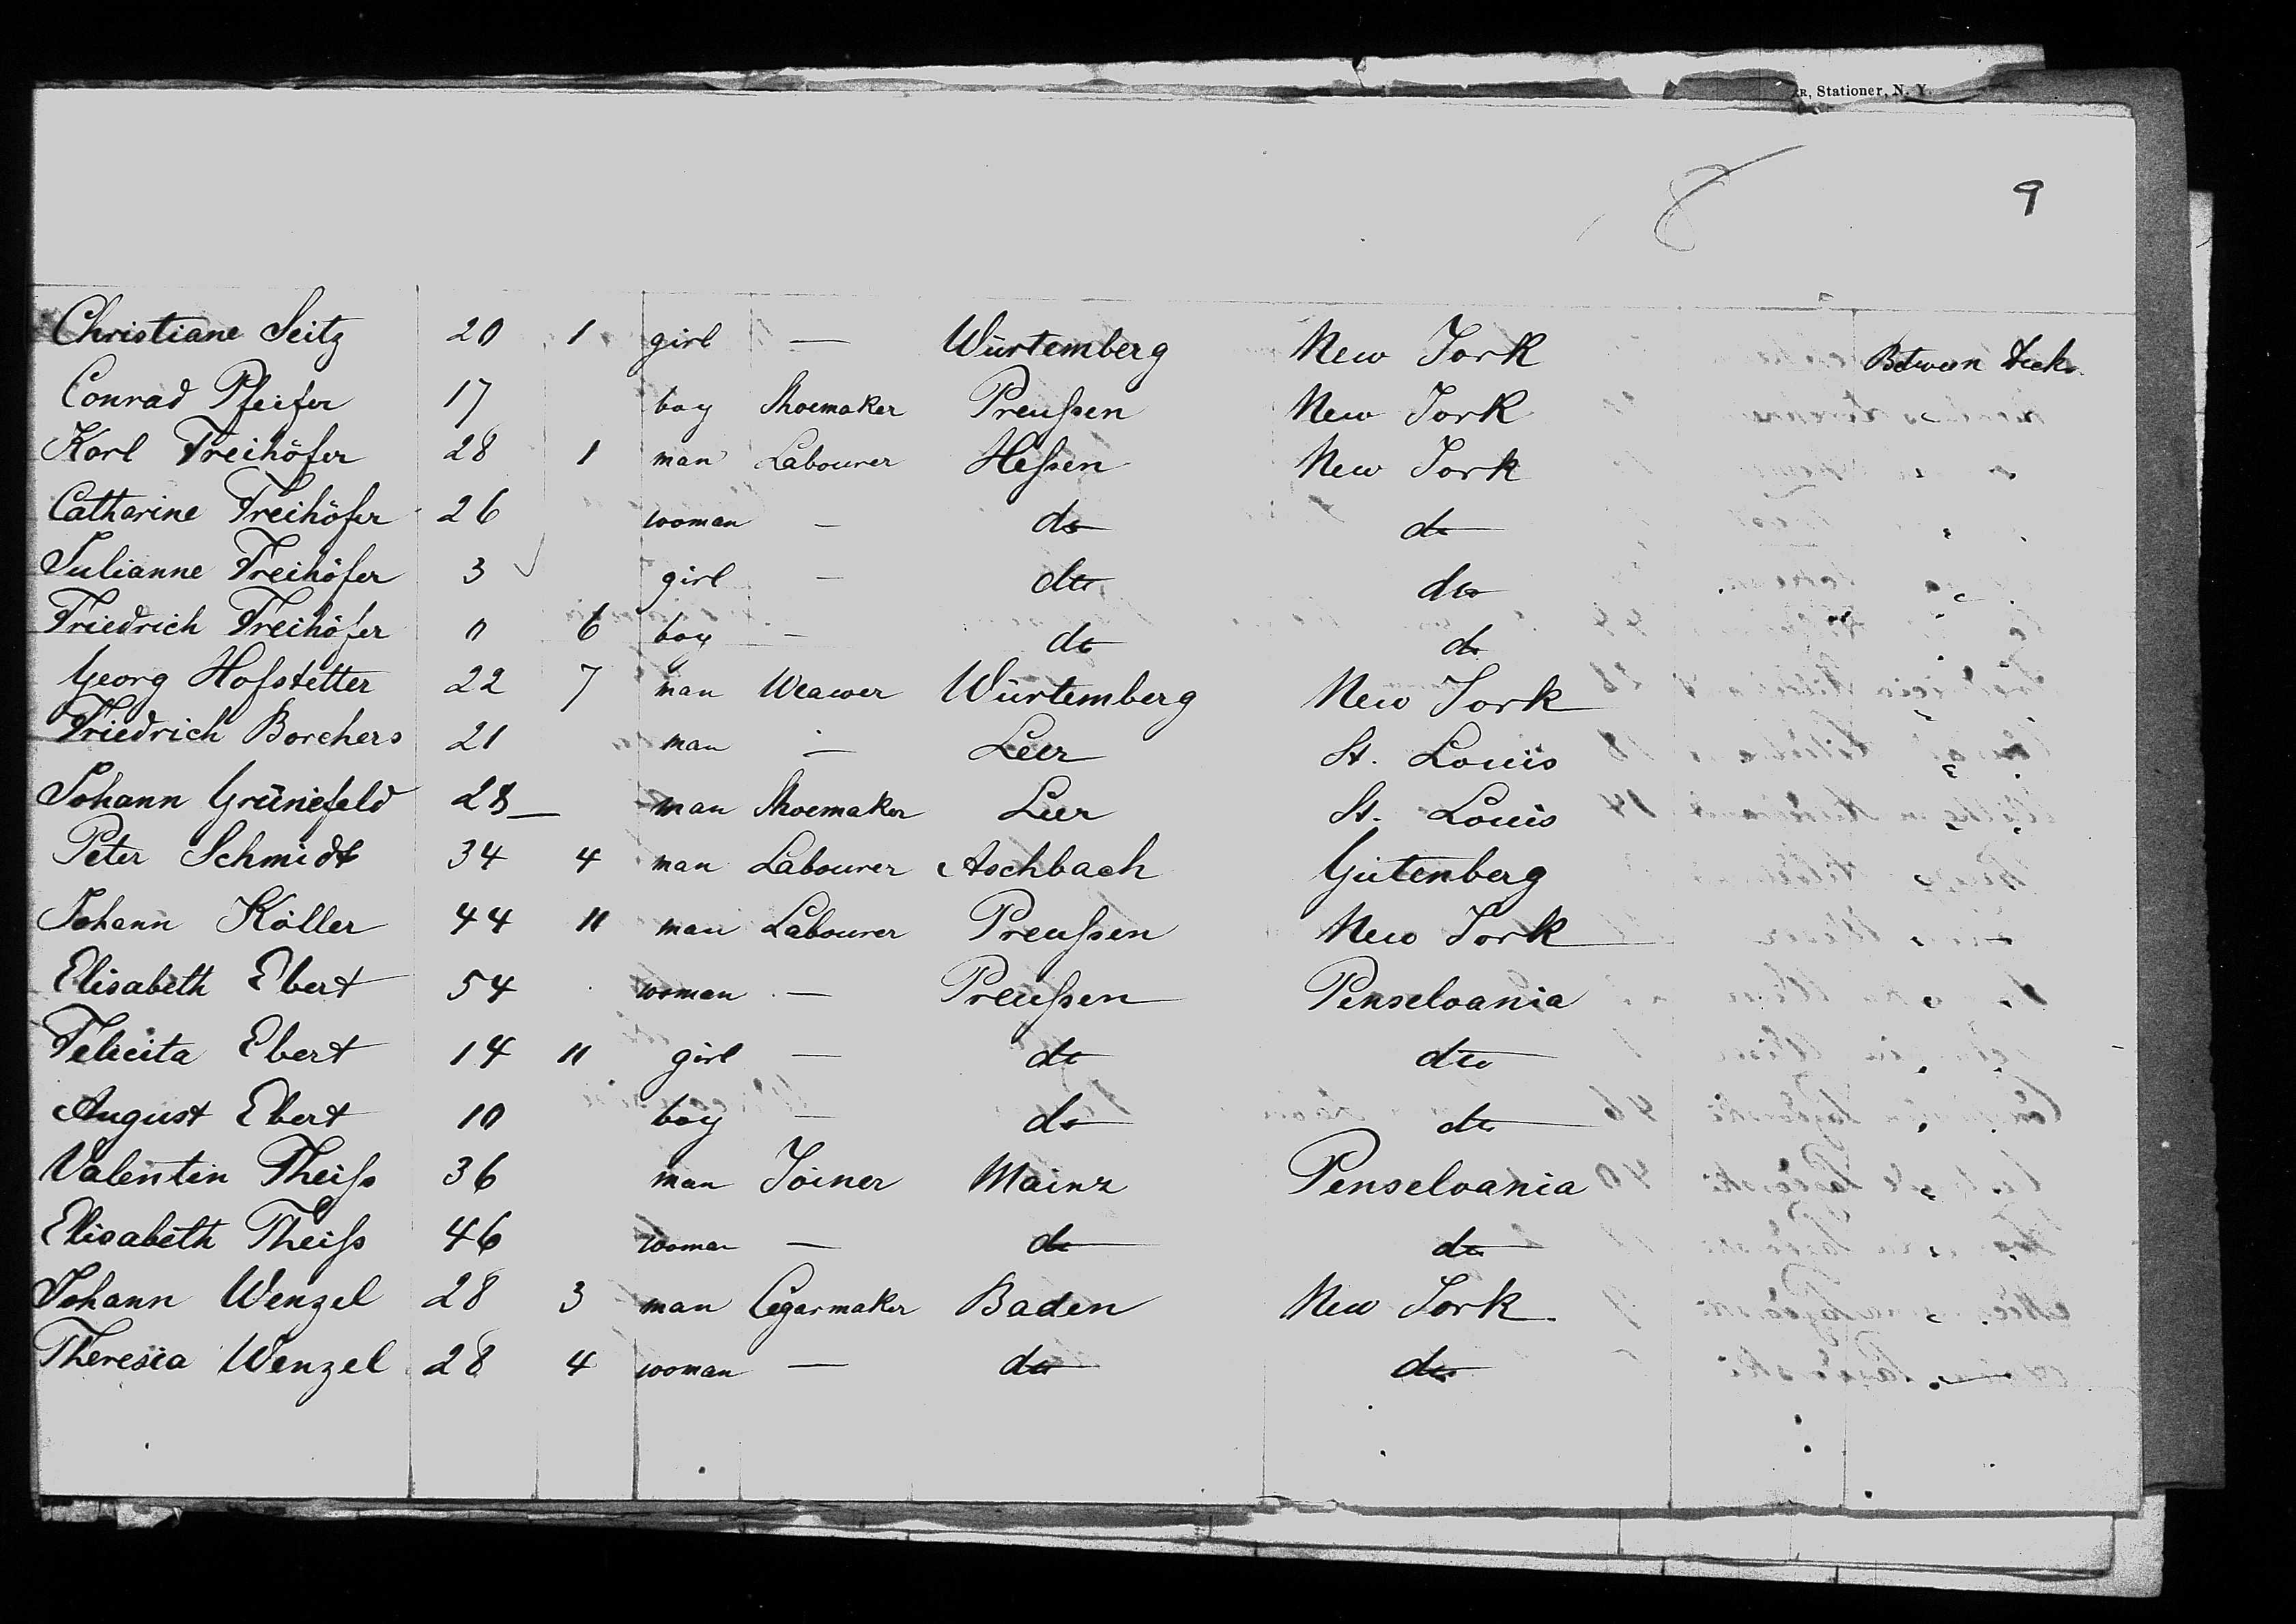 R, Stationer, N. Y.
8 9
Christiane Seitz 20 1 girl — Würtemberg New York Between Decks
Conrad Pfeifer 17 boy Shoemaker Preußen New York "
Karl Freihöfer 28 1 man Labourer Heßen New York "
Catharine Freihöfer 26 woman — do do "
Julianne Freihöfer 3 girl — dto do "
Friedrich Freihöfer 0 6 boy — do do "
Georg Hofstetter 22 7 man Weawer Würtemberg New York "
Friedrich Borchers 21 man — Leer St. Louis "
Johann Grünefeld 28 — man Shoemaker Leer St. Louis "
Peter Schmidt 34 4 man Labourer Aschbach Gutenberg "
Johann Köller 44 11 man Labourer Preußen New York "
Elisabeth Ebert 54 woman — Preußen Penselvania "
Felicita Ebert 14 11 girl — do dto "
August Ebert 10 boy — do dto "
Valentin Theiß 36 man Joiner Mainz Penselvania "
Elisabeth Theiß 46 woman — do do "
Johann Wenzel 28 3 man Cegarmaker Baden New York "
Theresia Wenzel 28 4 woman — do do "